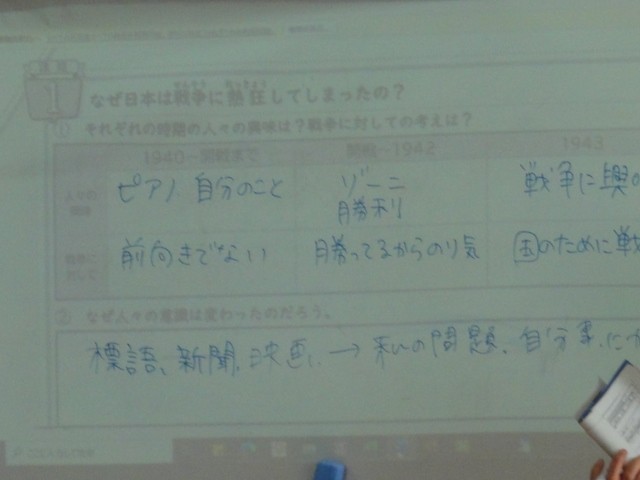 1
なぜ日本は戦争に熱狂してしまったの？
① それぞれの時期の人々の興味は？戦争に対しての考えは？
1940～開戦まで 開戦～1942 1943
ピアノ 自分のこと ゾーニ 戦争に興の
勝利
前向きでない 勝ってるからのり気 国のために戦
② なぜ人々の意識は変わったのだろう。
標語、新聞、映画、→ 私の問題、自分事に